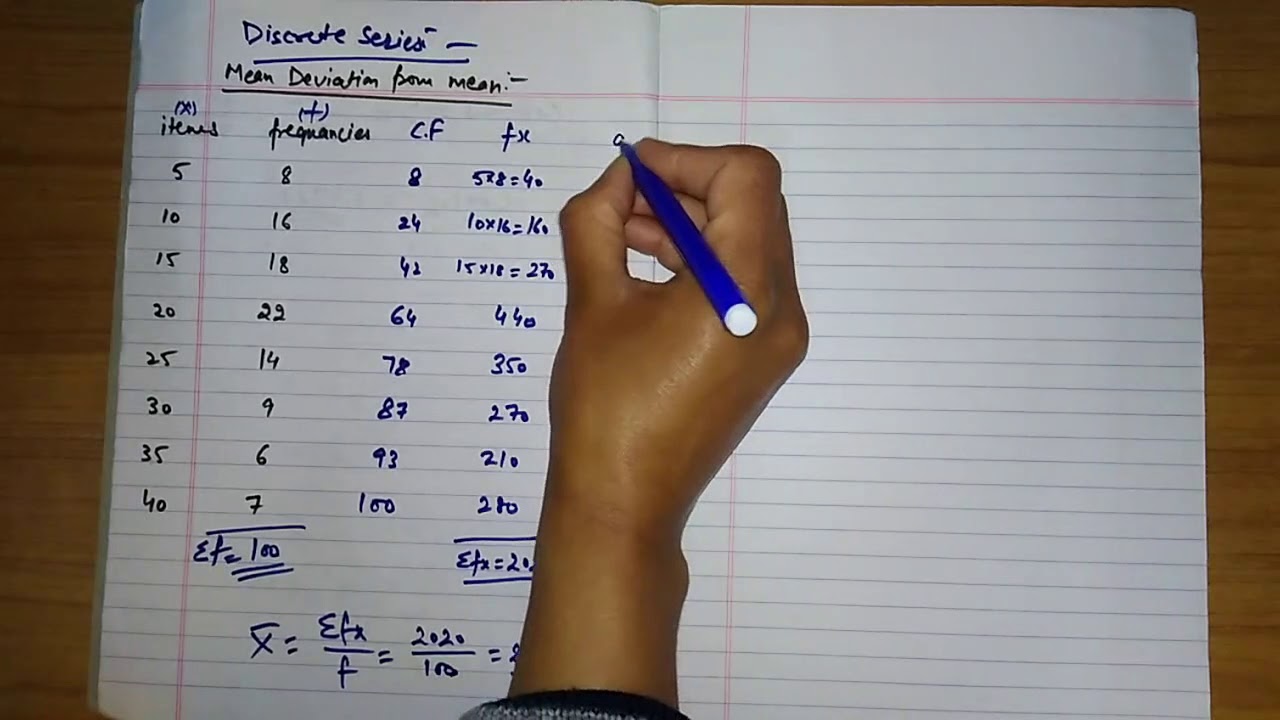 Discrete Series:-
Mean Deviation from mean:-
(x) (f)
items frequancies C.F fx
5 8 8 5×8=40
10 16 24 10×16=160
15 18 42 15×18=270
20 22 64 440
25 14 78 350
30 9 87 270
35 6 93 210
40 7 100 280
Σf=100 Σfx=20
X̄ = Σfx/f = 2020/100 =